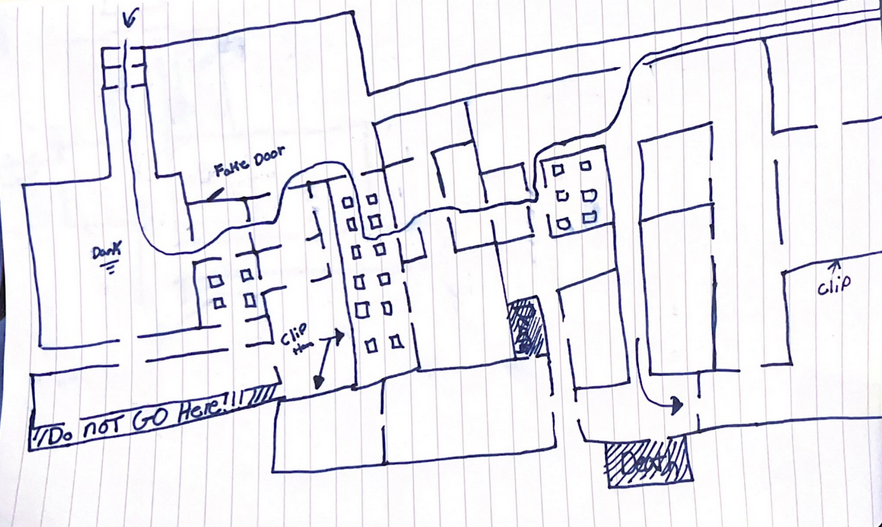 Fake Door
Dark
Clip
Clip
Do not GO Here!!!
Death